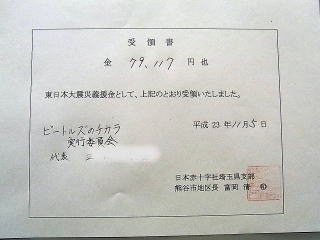 受領書
金 79,117 円也
東日本大震災義援金として、上記のとおり受領いたしました。
平成 23 年 11 月 5 日
ビートルズのチカラ
実行委員会
代表 三
日本赤十字社埼玉県支部
熊谷市地区長 富岡 清